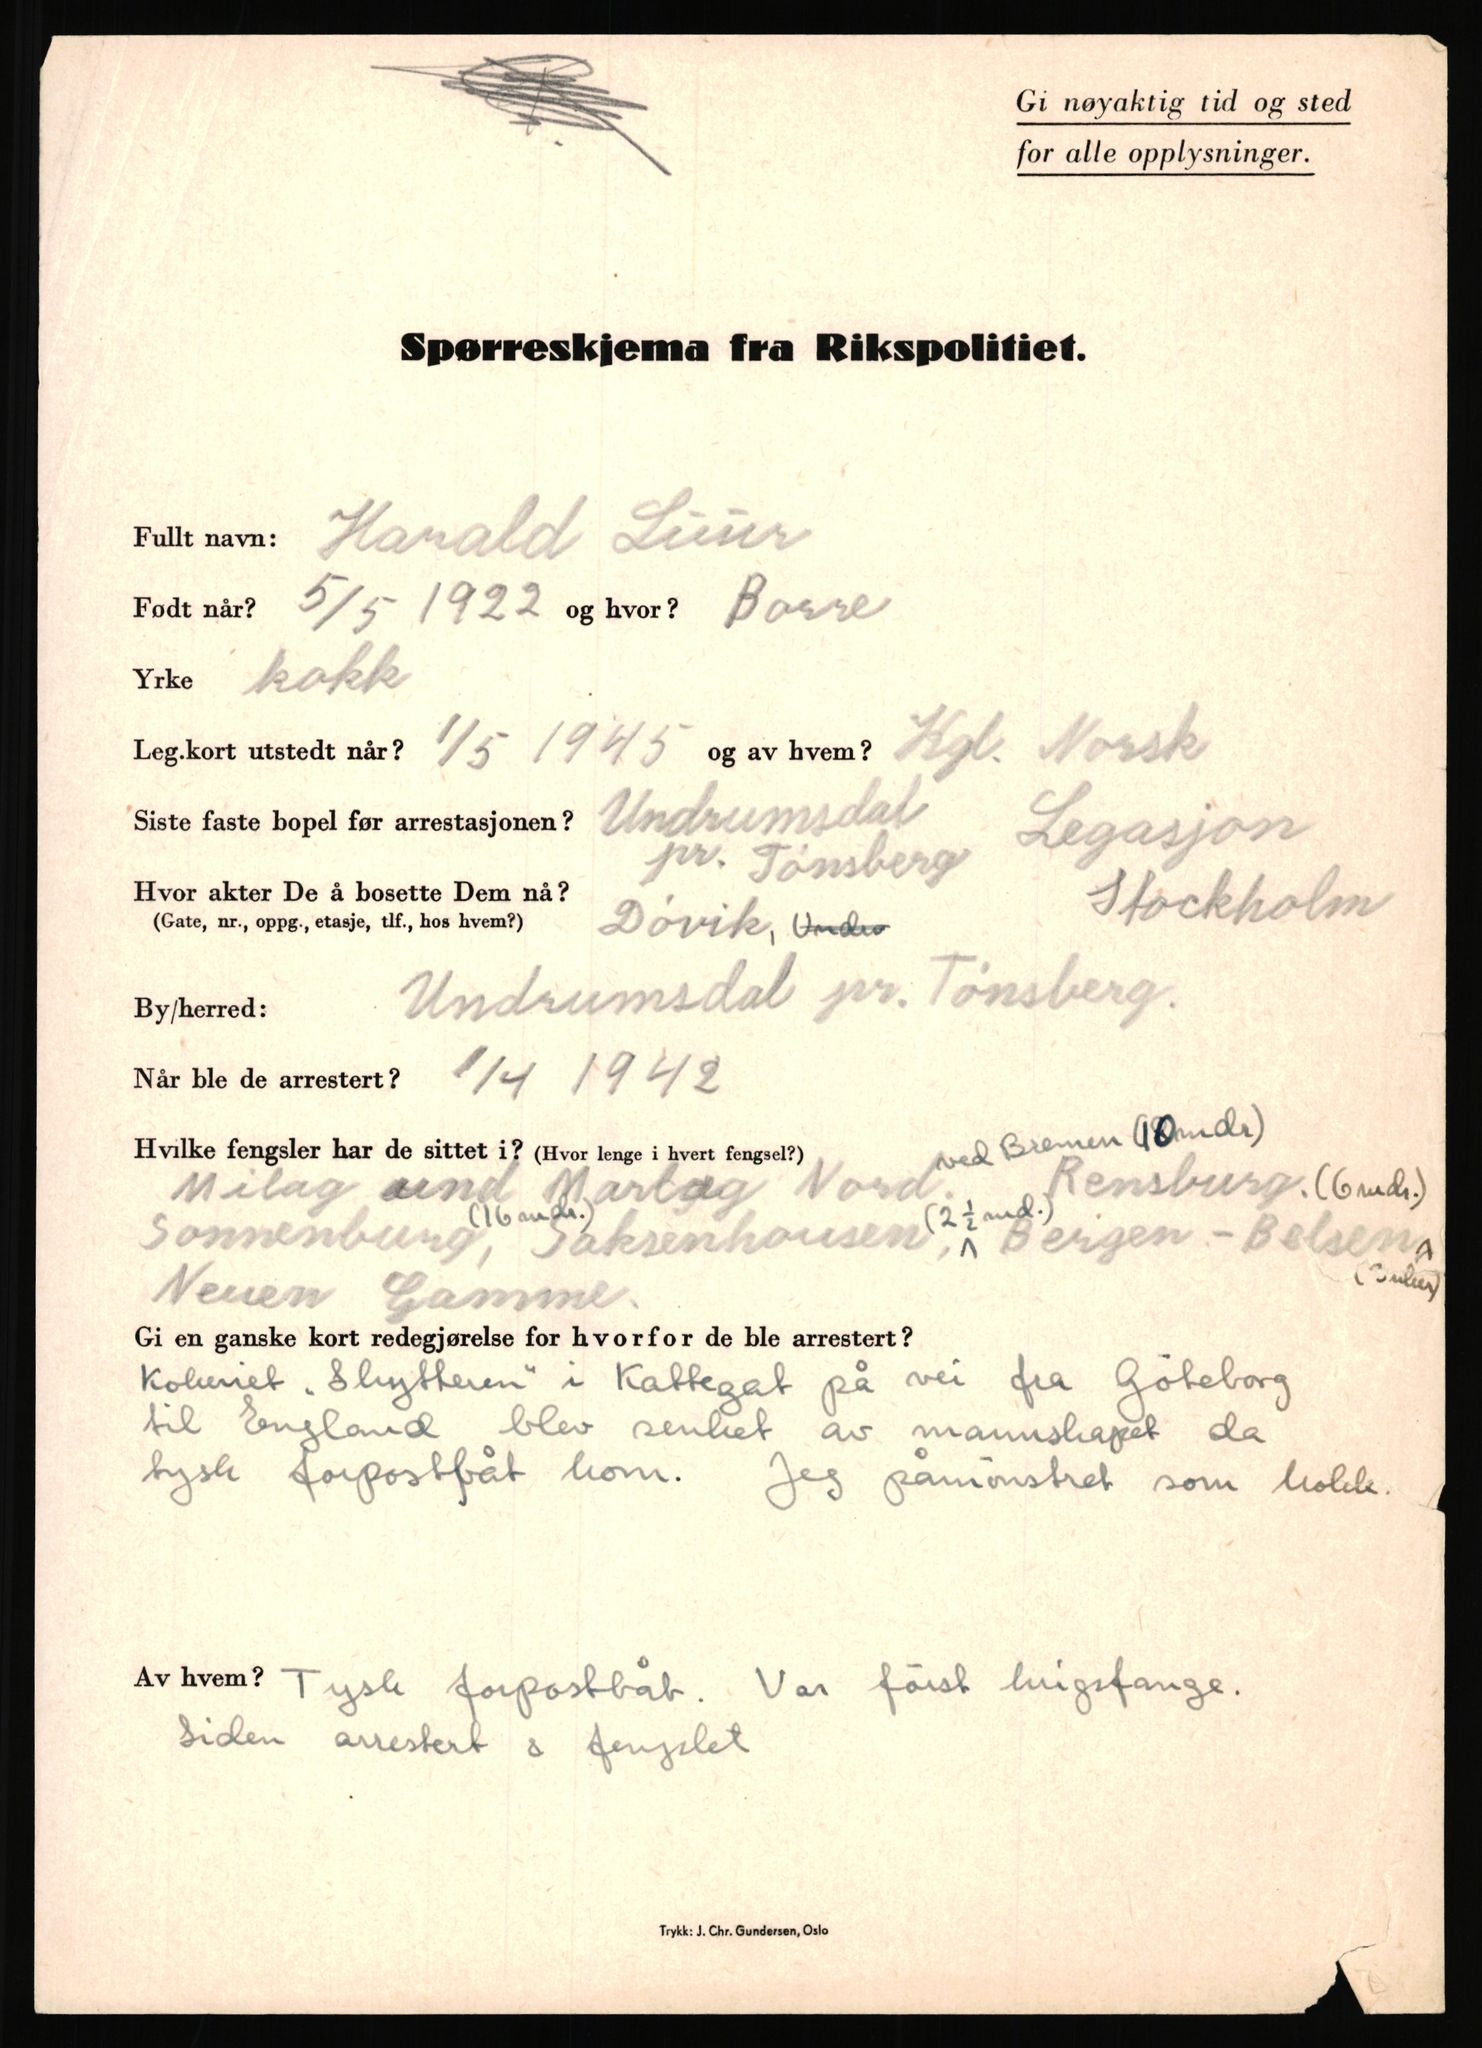 Gi nøyaktig tid og sted
for alle opplysninger.
Spørreskjema fra Rikspolitiet.
Fullt navn: Harald Liür
Født når? 5/5 1922 og hvor? Borre
Yrke kokk
Leg.kort utstedt når? 1/5 1945 og av hvem? Kgl. Norsk
Siste faste bopel før arrestasjonen? Undrumsdal Legasjon
pr. Tónsberg
Hvor akter De å bosette Dem nå? Stockholm
(Gate, nr., oppg., etasje, tlf., hos hvem?) Dóvik, Undru
By/herred: Undrumsdal pr. Tónsberg.
Når ble de arrestert? 1/4 1942
Hvilke fengsler har de sittet i? (Hvor lenge i hvert fengsel?) ved Bremen (10 mdr)
Milag und Marlag Nord. Rensburg. (6 mdr.)
(16 mdr.) (2 ½ md.)
Sonnenburg, Saksenhausen, Bergen-Belsen
(3 uker)
Neuen Gamme.
Gi en ganske kort redegjørelse for hvorfor de ble arrestert?
Kokeriet „Skytteren" i Kattegat på vei fra Göteborg
til England blev senket av mannskapet da
tysk forpostbåt kom. Jeg påmönstret som kokk.
Av hvem? Tysk forpostbåt. Var först krigsfange.
Siden arrestert & fengslet
Trykk: J. Chr. Gundersen, Oslo